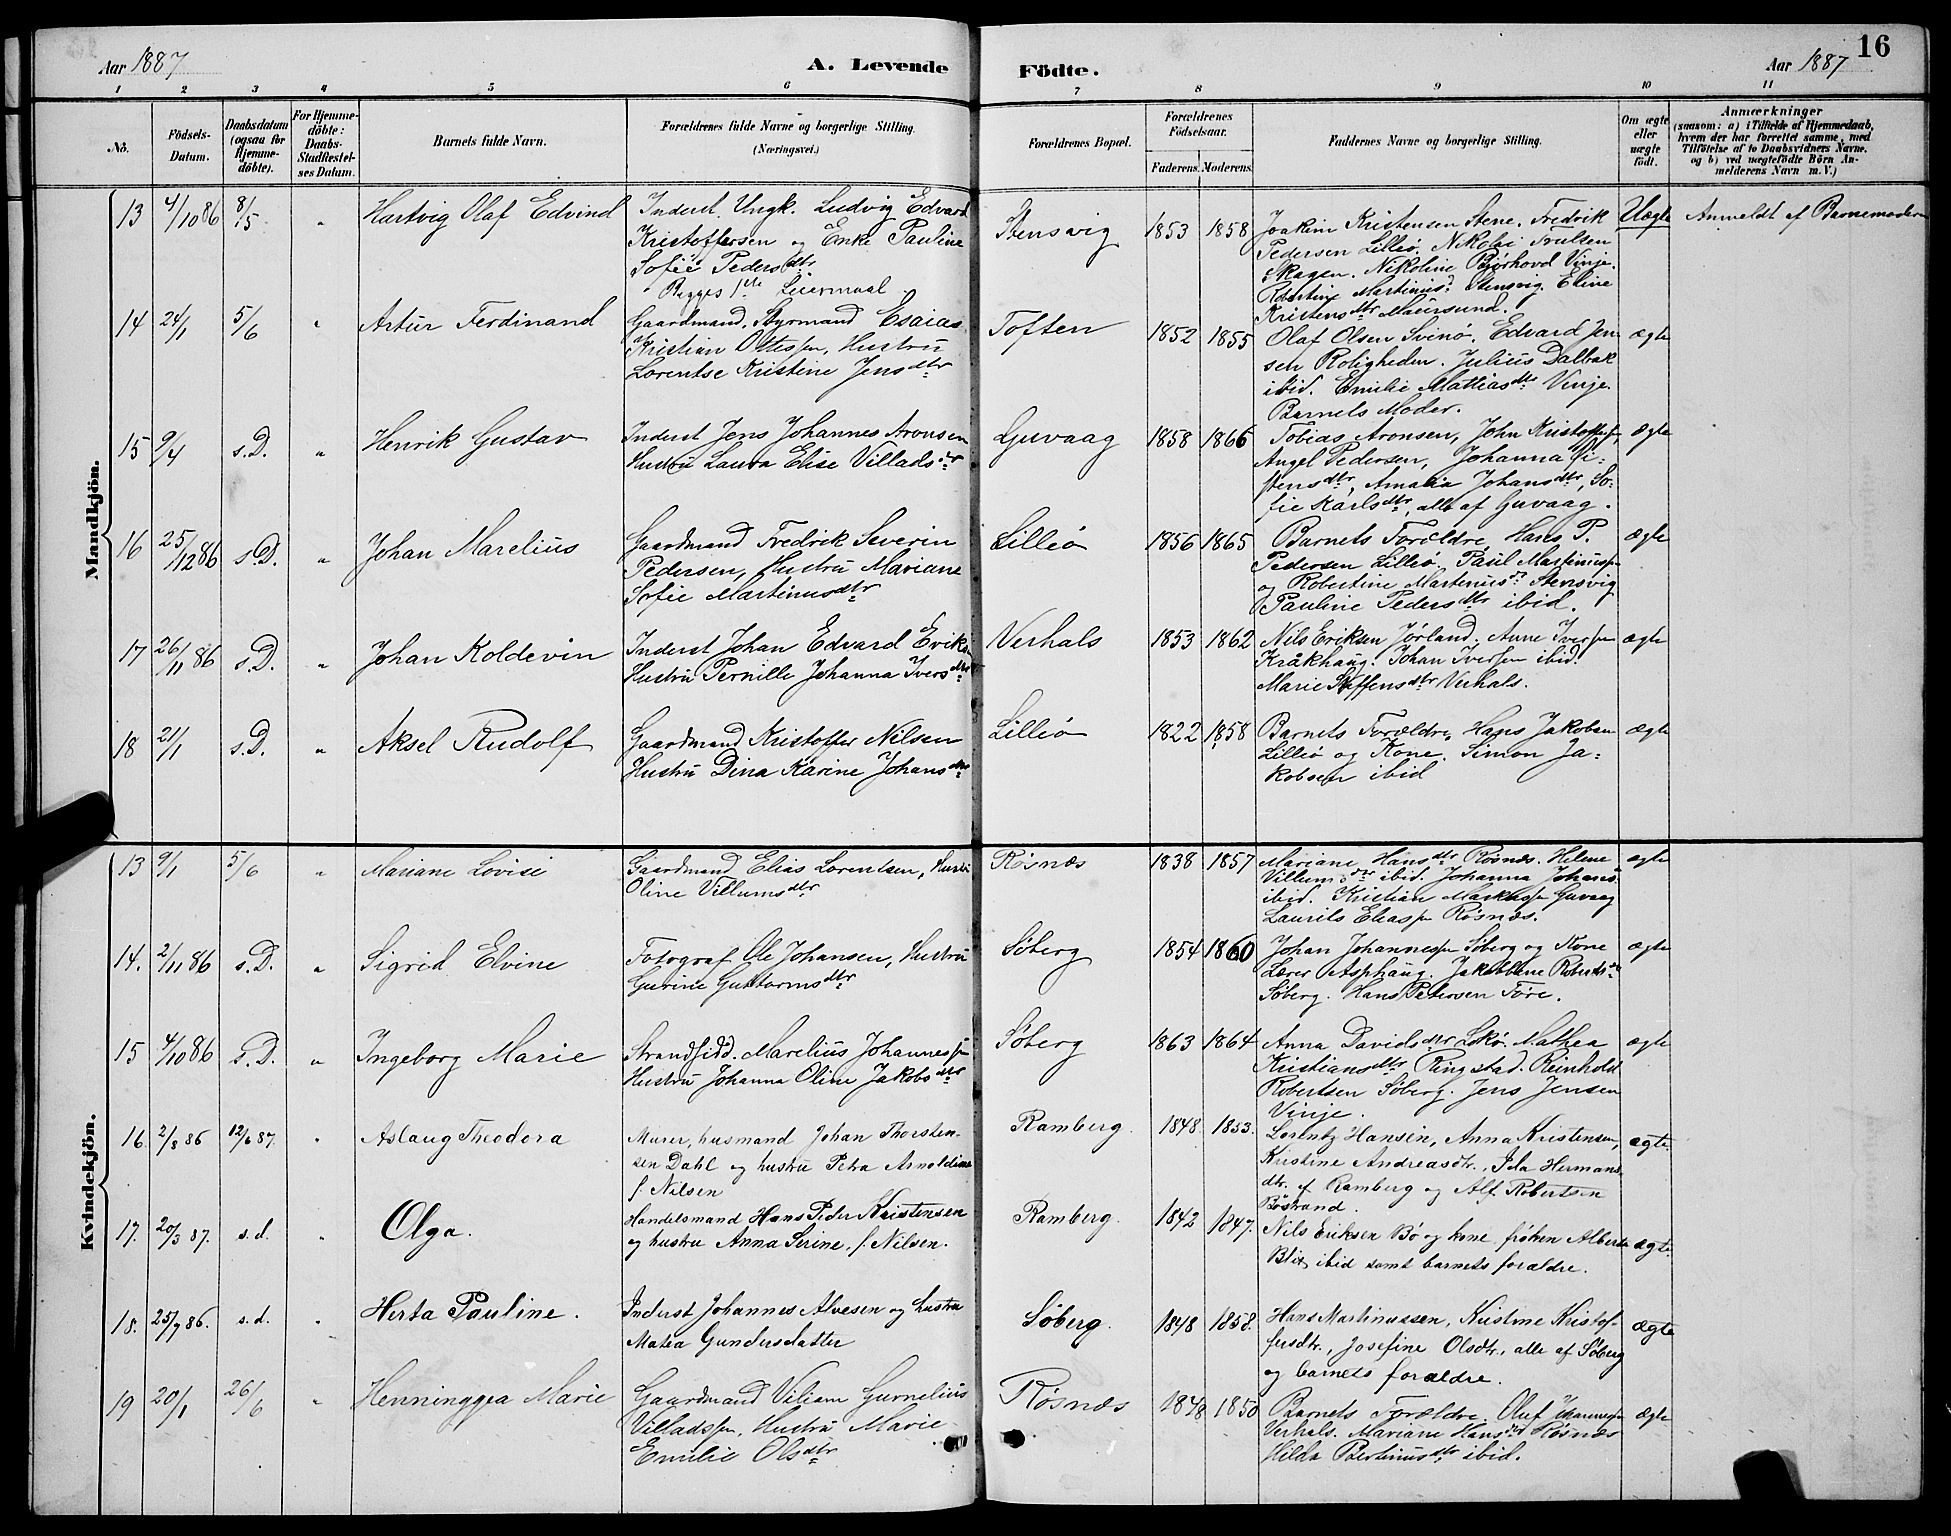 Aar 1887
A. Levende Födte.
Aar 1887
16
1 2 3 4 5 6 7 8 9 10 11
No.
Födsels-Datum.
Daabsdatum (ogsaa for Hjemme-döbte).
For Hjemme-döbte: Daabs-Stadfæstel-ses Datum.
Barnets fulde Navn.
Forældrenes fulde Navne og borgerlige Stilling.
(Næringsvei.)
Forældrenes Bopæl.
Forældrenes Födselsaar.
Faderens. Moderens.
Faddernes Navne og borgerlige Stilling.
Om ægte eller uægte födt.
Anmærkninger
(saasom: a) i Tilfælde af Hjemmedaab,
hvem der har forrettet samme, med
Tilföielse af to Daabsvidners Navne,
og b) ved uægtefödte Börn An-
melderens Navn m. V.)
Mandkjön.
13 4/10 86 8/5 " Hartvig Olaf Edvind
Inderst. Ungk. Ludvig Edvard
Kristoffersen og Enke Pauline
Sofie Pedersdtr
Begges 1ste Leiermaal.
Stensvig 1853 1858
Joakim Kristensen Stene. Fredrik
Pedersen Lilleö, Nikolai Trulsen
Skagen. Nikoline Bjørhovd Vinje.
Robertine Martinusd. Stensvig. Eline
Kristensdtr Maursund.
Uægte Anmeldt af Barnemoderen
14 24/1 5/6 " Artur Ferdinand
Gaardmand, Styrmand Esaias
Kristian Ottessen, Hustru
Lorentse Kristine Jensdtr
Toften 1852 1855
Olaf Olsen Svinø. Edvard Jen
sen Roligheden. Julius Dalbak
ibid. Emilie Mathiasdtr Vinje.
Barnets Moder.
ægte
15 9/4 s.D. " Henrik Gustav
Inderst Jens Johannes Aronsen
Hustru Laura Elise Villadsdtr
Guvaag 1858 1866
Tobias Aronsen, John Kristoffers.
Angel Pedersen, Johanna Si-
stensdtr, Amalia Johansdtr, So-
fie Karlsdtr, alle af Guvaag.
ægte
16 25/12 86 s.D. " Johan Marelius
Gaardmand Fredrik Severin
Pedersen, Hustru Mariane
Sofie Martinusdtr
Lilleö 1856 1865
Barnets Forældre, Hans P.
Pedersen Lilleö, Paul Martinussen
og Robertine Martinusd. Stensvig
Pauline Pedersdtr ibid.
ægte
17 26/11 86 s.D. " Johan Koldevin
Inderst Johan Edvard Eriks
Hustru Pernille Johanna Iversdtr
Verhals 1853 1862
Nils Eriksen Jörland. Anne Iversen
Kråkhaug. Johan Iversen ibid.
Marie Steffensdtr Verhals.
ægte
18 21/1 s.D. " Aksel Rudolf
Gaardmand Kristoffer Nilsen
Hustru Dina Karine Johansdtr
Lilleö 1822 1858
Barnets Forældre, Hans Jakobsen
Lilleö og Kone. Simon Ja-
kobsen ibid
ægte
Kvindekjön.
13 9/1 5/6 " Mariane Lovise
Gaardmand Elias Lorentsen, Hustru
Oline Villumsdtr
Rösnæs 1838 1857
Mariane Hansdtr Rösnæs. Helene
Villumsdtr ibid. Johanna Johans
ibid. Kristian Markussen Guvaag
Laurits Eliassen Rösnæs.
ægte
14. 2/11 86 s.D. " Sigrid Elvine
Fotograf Ole Johansen, Hustru
Gurine Guttormsdtr
Söberg 1854 1860
Johan Johannessen Söberg og Kone
Lærer Asphaug. Jakobine Robertsdtr
Söberg. Hans Petersen Före.
ægte
15 4/10 86 s.D. " Ingeborg Marie
Strandsidd. Marelius Johannessen
Hustru Johanna Oline Jakobsdtr
Söberg 1863 1864
Anna Davidsdtr Skö. Mathea
Kristiansdtr Ringstad. Reinholdt
Robertsen Söberg. Jens Jensen
Vinje.
ægte
16. 2/8 86 12/6 87. " Aslaug Theodora
Murer, husmand Johan Thorsten-
sen Dahl og hustru Petra Arnoldine
f. Nilsen
Ramberg. 1848 1853.
Lorentz Hansen, Anna Kristensen,
Kristine Andreasdtr., Ida Hermans-
dtr. af Ramberg og Alf Robertsen
Böstrand.
ægte.
17. 20/3 87. s.d. " Olga.
Handelsmand Hans Peder Kristensen
og hustru Anna Serine, f. Nilsen.
Ramberg. 1842 1847.
Nils Eriksen Bö og kone, fröken Alberta
Blix ibid samt barnets forældre.
ægte.
18. 25/7 86. s.d. " Herta Pauline.
Inderst Johannes Alvesen og hustru
Matea Gundersdatter
Söberg. 1848 1858.
Hans Martinussen, Kristine Kristof-
fersdtr., Josefine Olsdtr., alle af Söberg
og barnets forældre.
ægte
19 20/1 26/6 " Henninggea Marie
Gaardmand Viliam Gurnelius
Villadssen, Hustru Marie
Emilie Olsdtr
Rösnæs 1848 1850
Barnets Forældre. Oluf Johannessen
Verhals. Mariane Hansdtr Rösnæs
Hilda Bertinusdtr ibid.
ægte